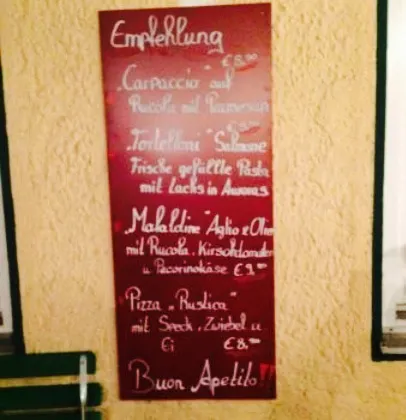 Empfehlung
€8,90
„Carpaccio" auf
Rucola mit Parmesan
„Tortelloni" Salmone
Frische gefüllte Pasta
mit Lachs in Auroras
„Mafaldine" Aglio e Olio
mit Rucola, Kirschtomaten
u Pecorinokäse €9,00
Pizza „Rustica"
mit Speck, Zwiebel u
Ei €8,00
Buon Apetito!!